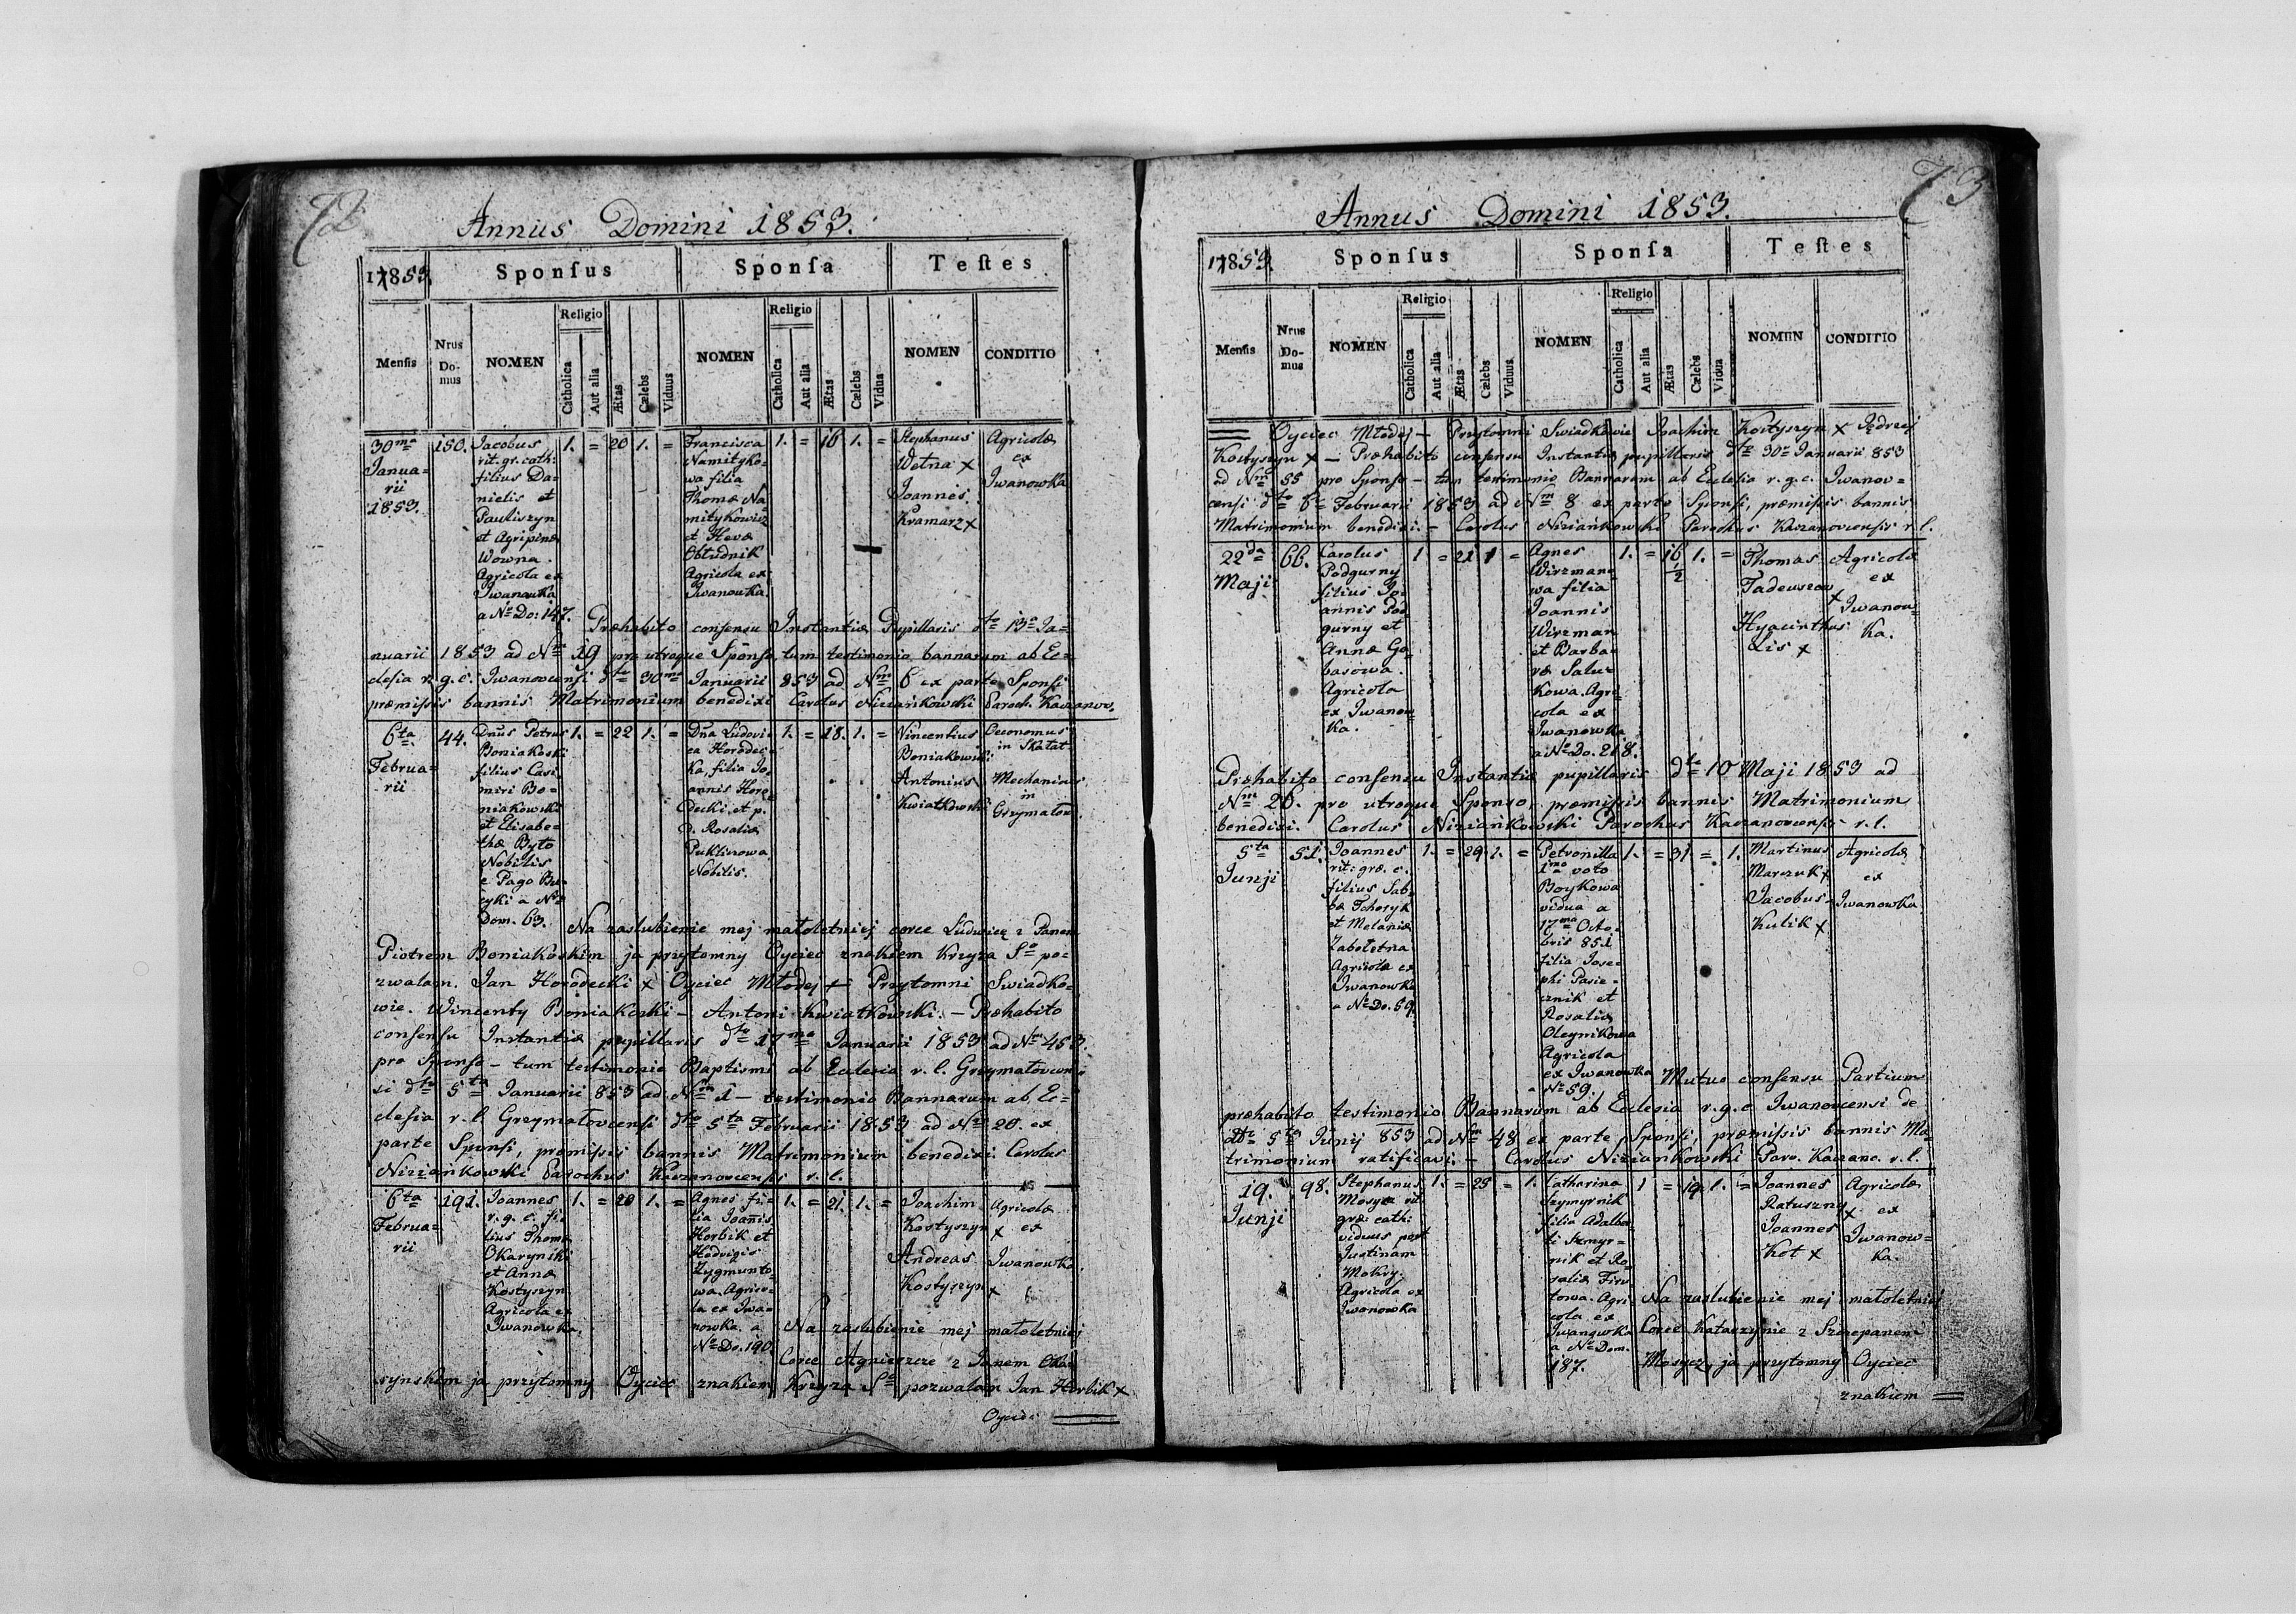 72
Annus Domini 1853.
1853.
Sponſus
Sponſa
Teſtes
Menſis
Nrus Do-mus
NOMEN
Religio
Catholica
Aut alia
Ætas
Cælebs
Viduus
NOMEN
Religio
Catholica
Aut alia
Ætas
Cælebs
Vidua
NOMEN
CONDITIO
30ma
Janua=
rii
1853.
150.
Jacobus
rit. gr. cath:
filius Da=
nielis et
Pauliszyn
et Agripinæ
Wowna
Agricola ex
Iwanowka
a Nro Do: 147.
1. = 20 1. =
Francisca
Namityko=
wa filia
Thomæ Na
mitykowicz
et Hevæ
Obłudnik
Agricola ex
Iwanowka.
1. = 16 1. =
Stephanus
Wołna x
Joannes
Kramarz x
Agricolæ
ex
Iwanowka
Præhabito consensu Instantiæ Pupillaris dto 13a Ja=
nuarii 1853 ad Nrm 19 pro utroque Sponso, tum testimonio bannarum ab Ec=
clesia r. g. c. Iwanovcensi dto 30ma Januarii 853 ad Nrm 6 ex parte Sponsi
præmissis bannis Matrimonium benedixi Carolus Niziańkowski Paroch. Kaczanow.
6ta
Februa=
rii
44.
Dnus Petrus
Boniakoski
filius Casi
miri Bo=
niakowski
et Elisabe=
thæ Byto
Nobilis
e Pago Bu=
cyki a Nro
Dom. 63.
1. = 22 1. =
Dna Ludovi=
ca Horodec=
ka, filia Jo=
annis Horo
decki et p.
d. Rosaliæ
Puklinowa
Nobilis.
1. = 18. 1. =
Vincentius
Boniakowski
Antonius
Kwiatkowski
Oeconomus
in Skałat
Mechanicus
in
Grzymałow.
Na zaslubienie mej małoletniej corce Ludwice z Panem
Piotrem Boniakoskim ja przytomny Oyciec znakiem Krzyza So po=
zwalam. Jan Horodecki x Oyciec Młodej + Przytomni Swiadko=
wie. Wincenty Boniakoski – Antoni Kwiatkowski. – Præhabito
consensu Instantiæ pupillaris dto 17ma Januarii 1853 ad Nrm 453.
pro Sponso – tum testimonio Baptismi ab Ecclesia r. l. Grzymałovcen=
si dto 5ta Januarii 853 ad Nrm 1 – testimonio Bannarum ab Ec=
clesia r. l. Grzymałovcensi dto 5ta Februarii 1853 ad Nrm 20. ex
parte Sponsi, præmissis bannis Matrimonium benedixi Carolus
Niziańkowski Parochus Kaczanovcensis r. l.
6ta
Februa=
rii
191.
Joannes
r. g. c. fi=
lius Thomæ
Okaryński
et Annæ
Kostyszyn
Agricola ex
Iwanowka.
1. = 20 1. =
Agnes fi=
lia Joanis
Horbik et
Hedvigis
Zygmunto=
wa. Agrico=
la ex Iwa=
nowka. a
Nro Do. 190.
1. = 21. 1. =
Joachim
Kostyszyn
x
Andreas
Kostyszyn
x
Agricolæ
ex
Iwanowka
Na zaslubienie mej małoletniej
Corce Agnieszce z Janem Oka=
rynskim ja przytomny Oyciec znakiem Krzyza So pozwalam Jan Horbik x
Oyciec
73
Annus Domini 1853.
1853.
Sponſus
Sponſa
Teſtes
Menſis
Nrus Do-mus
NOMEN
Religio
Catholica
Aut alia
Ætas
Cælebs
Viduus
NOMEN
Religio
Catholica
Aut alia
Ætas
Cælebs
Vidua
NOMEN
CONDITIO
Oyciec Młodej – Przytomni Swiadkowie Joachim Kostyszyn x Jędrzej
Kostyszyn x – Præhabito consensu Instantiæ pupillaris dto 30a Januarii 853
ad Nrm 55 pro Sponso – tum testimonio Bannarum ab Ecclesia r. g. c. Iwanov=
censi dto 6a Februarii 1853 ad Nrm 8 ex parte Sponsi, præmissis bannis
Matrimonium benedixi. – Carolus Niziańkowski Parochus Kaczanovcensis r. l.
22da
Maji
66.
Carolus
Podgurny
filius Jo=
annis Pod
gurny et
Annæ Go=
basowa.
Agricola
ex Iwanow
ka.
1 = 21 1 =
Agnes
Wirzmano
wa filia
Joannis
Wirzman
et Barba=
ræ Salu=
kowa. Agri=
cola ex
Iwanowka
a Nro Do. 218.
1. = 16 1/2 1. =
Thomas
Tadeuszow
x
Hyacinthus
Lis x
Agricolæ
ex
Iwanow=
ka.
Præhabito consensu Instantiæ pupillaris dto 10 Maji 1853 ad
Nrm 26. pro utroque Sponso, præmissis bannis Matrimonium
benedixi. Carolus Niziańkowski Parochus Kaczanovcensis r. l.
5ta
Junji
51.
Joannes
rit: græ. c.
filius Sab=
bæ Tchoryk
et Melaniæ
Zabołotna
Agricola ex
Iwanowka
a Nro Do. 59.
1. = 29 1. =
Petronilla
1mo voto
Boykowa
vidua a
17ma Octo=
bris 851
filia Jose=
phi Pasie=
cznik et
Rosaliæ
Oleynikowa
Agricola
ex Iwanowka
a Nro 59.
1. = 31 = 1.
Martinus
Marczuk x
Jacobus
Kulik x
Agricolæ
ex
Iwanowka
Mutuo consensu Partium
præhabito testimonio Bannarum ab Ecclesia r. g. c. Iwanovcensi de
dto 5ta Junij 853 ad Nrm 48 ex parte Sponsi, præmissis bannis Ma=
trimonium ratificavi. – Carolus Niziańkowski Paro. Kaczano. r. l.
19.
Junji
98.
Stephanus
Mosyza rit
græ: cath:
viduus post
Justinam
Mokry.
Agricola ex
Iwanowka
1. = 25 = 1.
Catharina
Szmyrnik
filia Adalbe
ti Szmyr=
nik et Ro=
saliæ Firu
towa. Agri=
cola ex
Iwanowka
a Nro Dom.
187.
1 = 19. 1. =
Joannes
Ratuszny
x
Joannes
Kot x
Agricolæ
ex
Iwanow=
ka.
Na zaslubienie mej małoletniej
Corce Katarzynie z Szczepanem
Mosyczą ja przytomny Oyciec
znakiem =